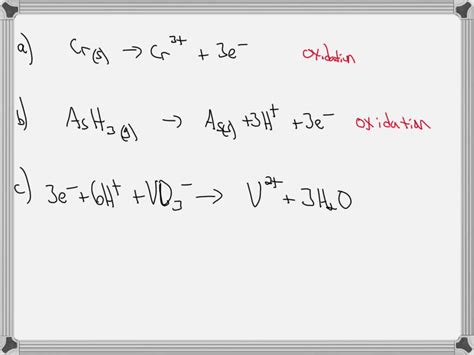 a) Cr(s) → Cr³⁺ + 3e⁻ oxidation
b) AsH₃(g) → As(s) + 3H⁺ + 3e⁻ oxidation
c) 3e⁻ + 6H⁺ + VO₃⁻ → V²⁺ + 3H₂O